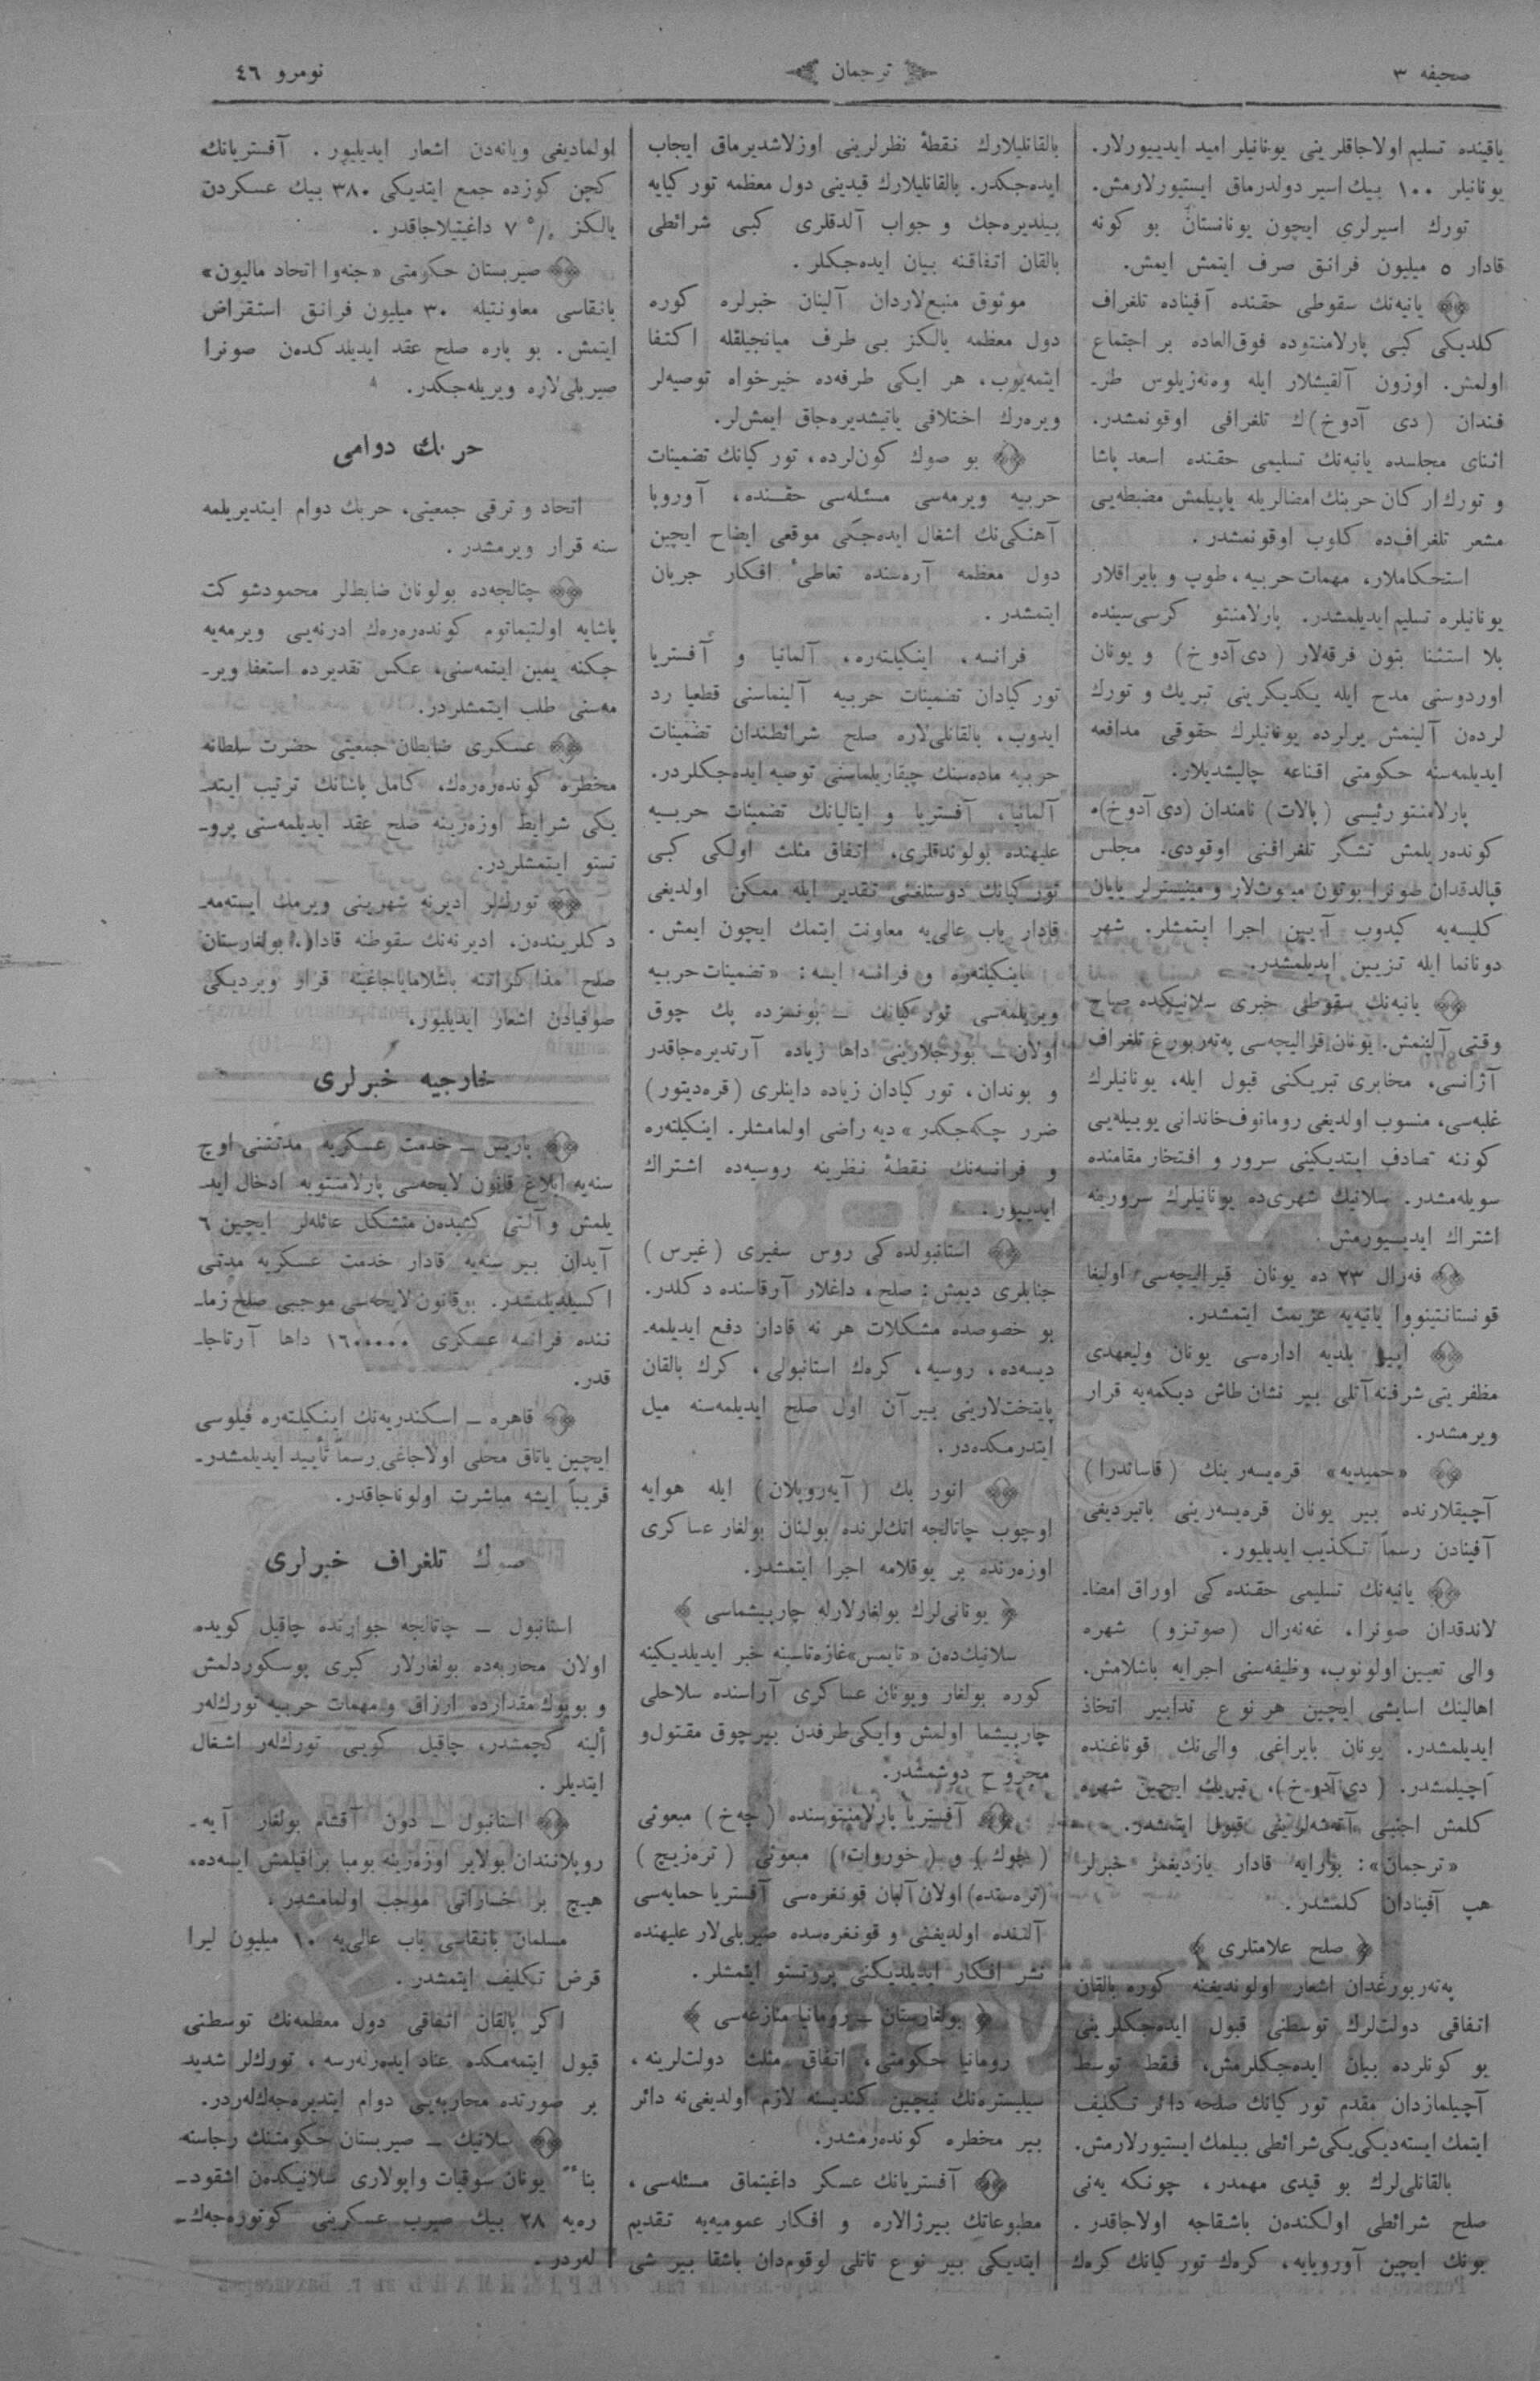 صحیفه ٣
ترجمان
نومرو ٤٦
یاقینده تسلیم اولاجاقلرینی یونانیلر امید ایدییورلار.
یونانیلر ١٠٠ بیك اسیر دولدرماق ایستیورلارمش.
تورك اسیرلری ایچون یونانستان بو كونه
قادار ٥ میلیون فرانق صرف ایتمش ایمش.
یانیه‌نك سقوطی حقنده آفیناده تلغراف
كلدیكی كبی پارلامنتوده فوق‌العاده بر اجتماع
اولمش. اوزون آلقیشلار ایله وه‌نه‌زیلوس طر-
فندان (دی آدوخ)ك تلغرافی اوقونمشدر.
اثنای مجلسده یانیه‌نك تسلیمی حقنده اسعد پاشا
و تورك اركان حربنك امضالریله یاپیلمش مضبطه‌یی
مشعر تلغراف‌ده كلوب اوقونمشدر.
استحكاملار، مهمات حربیه، طوپ و بایراقلار
یونانیلره تسلیم ایدیلمشدر. پارلامنتو كرسی‌سینده
بلا استثنا بتون فرقه‌لار (دی آدوخ) و یونان
اوردوسنی مدح ایله یكدیكرینی تبریك و تورك
لردن آلینمش یرلرده یونانیلرك حقوقی مدافعه
ایدیلمه‌سنه حكومتی اقناعه چالیشدیلار.
پارلامنتو رئیسی (پالات) نامندان (دی آدوخ)ه
كونده‌ریلمش تشكر تلغرافنی اوقودی. مجلس
قپالدقدان صونرا بوتون مبوث‌لار و مینیسترلر یایان
كلیسه‌یه كیدوب آیین اجرا ایتمشلر. شهر
دونانما ایله تزیین ایدیلمشدر.
یانیه‌نك سقوطی خبری سلانیكده صباح
وقتی آلینمش. یونان قرالیچه‌سی په‌ته‌ربورغ تلغراف
آژانسی، مخابری تبریكنی قبول ایله، یونانیلرك
غلبه‌سی، منسوب اولدیغی رومانوف خاندانی یوبیله‌یی
كوننه تصادف ایتدیكینی سرور و افتخار مقامنده
سویله‌مشدر. سلانیك شهری‌ده یونانیلرك سرورینه
اشتراك ایدییورمش.
فه‌رال ٢٣ ده یونان قیرالیچه‌سی اولیغا
قونستانتینووا یانیه‌یه عزیمت ایتمشدر.
بلدیه اداره‌سی یونان ولیعهدی
مظفریتی شرفنه آتلی بیر نشان طاش دیكمه‌یه قرار
ویرمشدر.
«حمیدیه» قره‌یسه‌رینك (قاساندرا)
آچیقلارنده بیر یونان قره‌یسه‌رینی باتیردیغی
آفینادن رسماً تكذیب ایدیلیور.
یانیه‌نك تسلیمی حقنده‌كی اوراق امضا-
لاندقدان صونرا، غه‌نه‌رال (صوتزو) شهره
والی تعیین اولونوب، وظیفه‌سنی اجرایه باشلامش.
اهالینك اسایشی ایچین هر نوع تدابیر اتخاذ
ایدیلمشدر. یونان بایراغی والی‌نك قوناغنده
آچیلمشدر. (دی آدوخ)، تبریك ایچین شهره
كلمش اجنبی آتاشه‌لرینی قبول ایتمشدر.
«ترجمان»: بورایه قادار یازدیغمز خبرلر
هپ آفینادان كلمشدر.
﴿ صلح علامتلری ﴾
په‌ته‌ربورغدان اشعار اولوندیغنه كوره بالقان
اتفاقی دولت‌لرك توسطنی قبول ایده‌جكلرینی
بو كونلرده بیان ایده‌جكلرمش، فقط توسط
آچیلمازدان مقدم توركیانك صلحه دائر تكلیف
ایتمك ایسته‌دیكی یكی شرائطی بیلمك ایستیورلارمش.
بالقانلی‌لرك بو قیدی مهمدر، چونكه یه‌نی
صلح شرائطی اولكندن باشقاجه اولاجاقدر.
بونك ایچین آوروپایه، كرك توركیانك كرك
بالقانلیلارك نقطهٔ نظرلرینی اوزلاشدیرماق ایجاب
ایده‌جكدر. بالقانلیلارك قیدینی دول معظمه توركیایه
بیلدیره‌جك و جواب آلدقلری كبی شرائطی
بالقان اتفاقنه بیان ایده‌جكلر.
موثوق منبع‌لاردان آلینان خبرلره كوره
دول معظمه یالكز بی طرف میانجیلقله اكتفا
ایتمه‌یوب، هر ایكی طرفه‌ده خیرخواه توصیه‌لر
ویره‌رك اختلافی یاتیشدیره‌جاق ایمش‌لر.
بو صوك كون‌لرده، توركیانك تضمینات
حربیه ویرمه‌سی مسئله‌سی حقنده، آوروپا
آهنكی‌نك اشغال ایده‌جكی موقعی ایضاح ایچین
دول معظمه آره‌سنده تعاطیٔ افكار جریان
ایتمشدر.
فرانسه، اینكیلتره، آلمانیا و آفستریا
توركیادان تضمینات حربیه آلینماسنی قطعیا رد
ایدوب، بالقانلی‌لاره صلح شرائطندان تضمینات
حربیه ماده‌سنك چیقاریلماسنی توصیه ایده‌جكلردر.
آلمانیا، آفستریا و ایتالیانك تضمینات حربیه
علیهنده بولوندقلری، اتفاق مثلث اولكی كبی
توركیانك دوستلغنی تقدیر ایله ممكن اولدیغی
قادار باب عالی‌یه معاونت ایتمك ایچون ایمش.
اینكیلتره و فرانسه ایسه: «تضمینات حربیه
ویریلمه‌سی توركیانك – بونسزده پك چوق
اولان – بورجلارینی داها زیاده آرتدیره‌جاقدر
و بوندان، توركیادان زیاده داینلری (قره‌دیتور)
ضرر چكه‌جكدر» دیه راضی اولمامشلر. اینكیلتره
و فرانسه‌نك نقطهٔ نظرینه روسیه‌ده اشتراك
ایدییور.
استانبولده‌كی روس سفیری (غیرس)
جنابلری دیمش: صلح، داغلار آرقاسنده دكلدر.
بو خصوصده مشكلات هر نه قادار دفع ایدیلمه-
دیسه‌ده، روسیه، كرك استانبولی، كرك بالقان
پایتخت‌لارینی بیر آن اول صلح ایدیلمه‌سنه میل
ایتدرمكده‌در.
انور بك (آیه‌روپلان) ایله هوایه
اوچوب چاتالجه اتك‌لرنده بولنان بولغار عساكری
اوزه‌رنده بر یوقلامه اجرا ایتمشدر.
﴿ یونانی‌لرك بولغارلارله چارپیشماسی ﴾
سلانیك‌دن «تایمس» غازه‌تاسینه خبر ایدیلدیكینه
كوره بولغار ویونان عساكری آراسنده سلاحلی
چارپیشما اولمش وایكی طرفدن بیرچوق مقتول و
مجروح دوشمشدر.
آفستریا پارلامنتوسنده (چه‌خ) مبعوثی
و (خوروات) مبعوثی (تره‌زیج)
(تره‌ستده) اولان آلبان قونغره‌سی آفستریا حمایه‌سی
آلتنده اولدیغنی و قونغره‌سده صیربلی‌لار علیهنده
نشر افكار ایدیلدیكنی پروتستو ایتمشلر.
﴿ بولغارستان – رومانیا منازعه‌سی ﴾
رومانیا حكومتی، اتفاق مثلث دولت‌لرینه،
سیلیستره‌نك نیچین كندیسنه لازم اولدیغی‌نه دائر
بیر مخطره كونده‌رمشدر.
آفستریانك عسكر داغیتماق مسئله‌سی،
مطبوعاتك بیرژالاره و افكار عمومیه‌یه تقدیم
ایتدیكی بیر نوع تاتلی لوقوم‌دان باشقا بیر شی
اولمادیغی ویانه‌دن اشعار ایدیلیور. آفستریانك
كچن كوزده جمع ایتدیكی ٣٨٠ بیك عسكردن
یالكز ٧ ٪ داغیتیلاجاقدر.
صیربستان حكومتی «جنه‌وا اتحاد مالیون»
بانقاسی معاونتیله ٣٠ میلیون فرانق استقراض
ایتمش. بو پاره صلح عقد ایدیلدكدن صونرا
صیربلی‌لاره ویریله‌جكدر.
حربك دوامی
اتحاد و ترقی جمعیتی، حربك دوام ایتدیریلمه
سنه قرار ویرمشدر.
چتالجه‌ده بولونان ضابطلر محمود شوكت
پاشایه اولتیماتوم كونده‌ره‌رك ادرنه‌یی ویرمه‌یه
جكنه یمین ایتمه‌سنی، عكس تقدیرده استعفا ویر-
مه‌سنی طلب ایتمشلردر.
عسكری ضابطان جمعیتی حضرت سلطانه
مخطره كونده‌ره‌رك، كامل پاشانك ترتیب ایتد-
یكی شرایط اوزه‌رینه صلح عقد ایدیلمه‌سنی پرو-
تستو ایتمشلردر.
تورك‌لر ادیرنه شهرینی ویرمك ایسته‌مه-
دكلریندن، ادیرنه‌نك سقوطنه قادار، بولغارستان
صلح مذاكراتنه باشلامایاجاغینه قرار ویردیكی
صوفیادن اشعار ایدیلیور.
خارجیه خبرلری
پاریس – خدمت عسكریه مدتنی اوچ
سنه‌یه ابلاغ قانون لایحه‌سی پارلامنتویه ادخال اید-
یلمش و آلتی كشیدن متشكل عائله‌لر ایچین ٦
آیدان بیر سنه‌یه قادار خدمت عسكریه مدتی
اكسیلدیلمشدر. بو قانون لایحه‌سی موجبی صلح زما-
ننده فرانسه عسكری ١٦٠٠٠٠٠ داها آرتاجا-
قدر.
قاهره – اسكندریه‌نك اینكیلتره فیلوسی
ایچین یاتاق محلی اولاجاغی رسماً تأیید ایدیلمشدر-
قریباً ایشه مباشرت اولوناجاقدر.
صوك تلغراف خبرلری
استانبول – چاتالجه جوارنده چاقیل كویده
اولان محاربه‌ده بولغارلار كیری پوسكوردلمش
و بویوك مقدارده ارزاق و مهمات حربیه تورك‌لر
ألینه كچمشدر، چاقیل كویی تورك‌لر اشغال
ایتدیلر.
استانبول – دون آقشام بولغار آیه-
روپلانندان بولایر اوزه‌رینه بومبا براقیلمش ایسه‌ده،
هیچ بر خساراتی موجب اولمامشدر.
مسلمان بانقاسی باب عالی‌یه ١٠ میلیون لیرا
قرض تكلیف ایتمشدر.
اكر بالقان اتفاقی دول معظمه‌نك توسطنی
قبول ایتمه‌مكده عناد ایده‌رلرسه، تورك‌لر شدید
بر صورتده محاربه‌یی دوام ایتدیره‌جك‌لردر.
سلانیك – صیربستان حكومتنك رجاسنه
بناءً یونان سوقیات واپولاری سلانیكدن اشقود-
ره‌یه ٢٨ بیك صیرب عسكرینی كوتوره‌جك-
لردر.